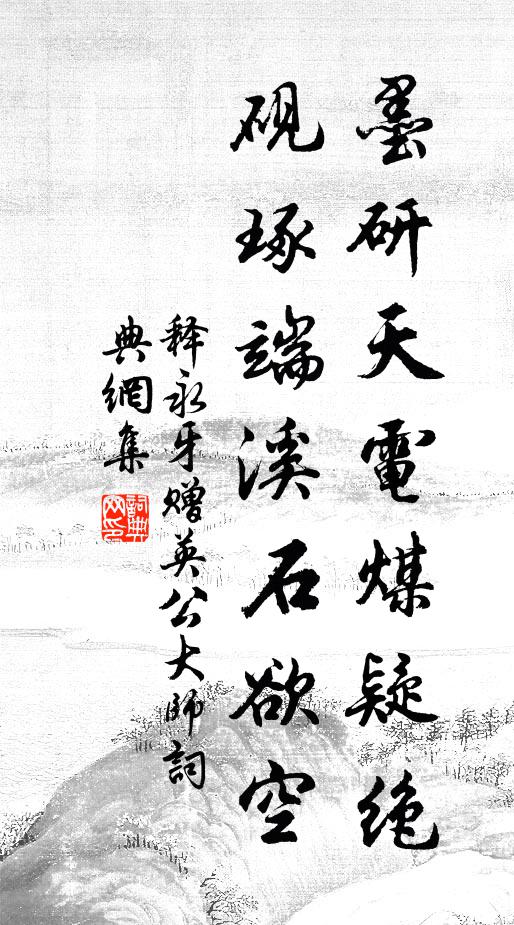 墨研天電煤疑絶
硯琢端溪石欲空
释永牙赠英公大師詞
典網集
詞典網印